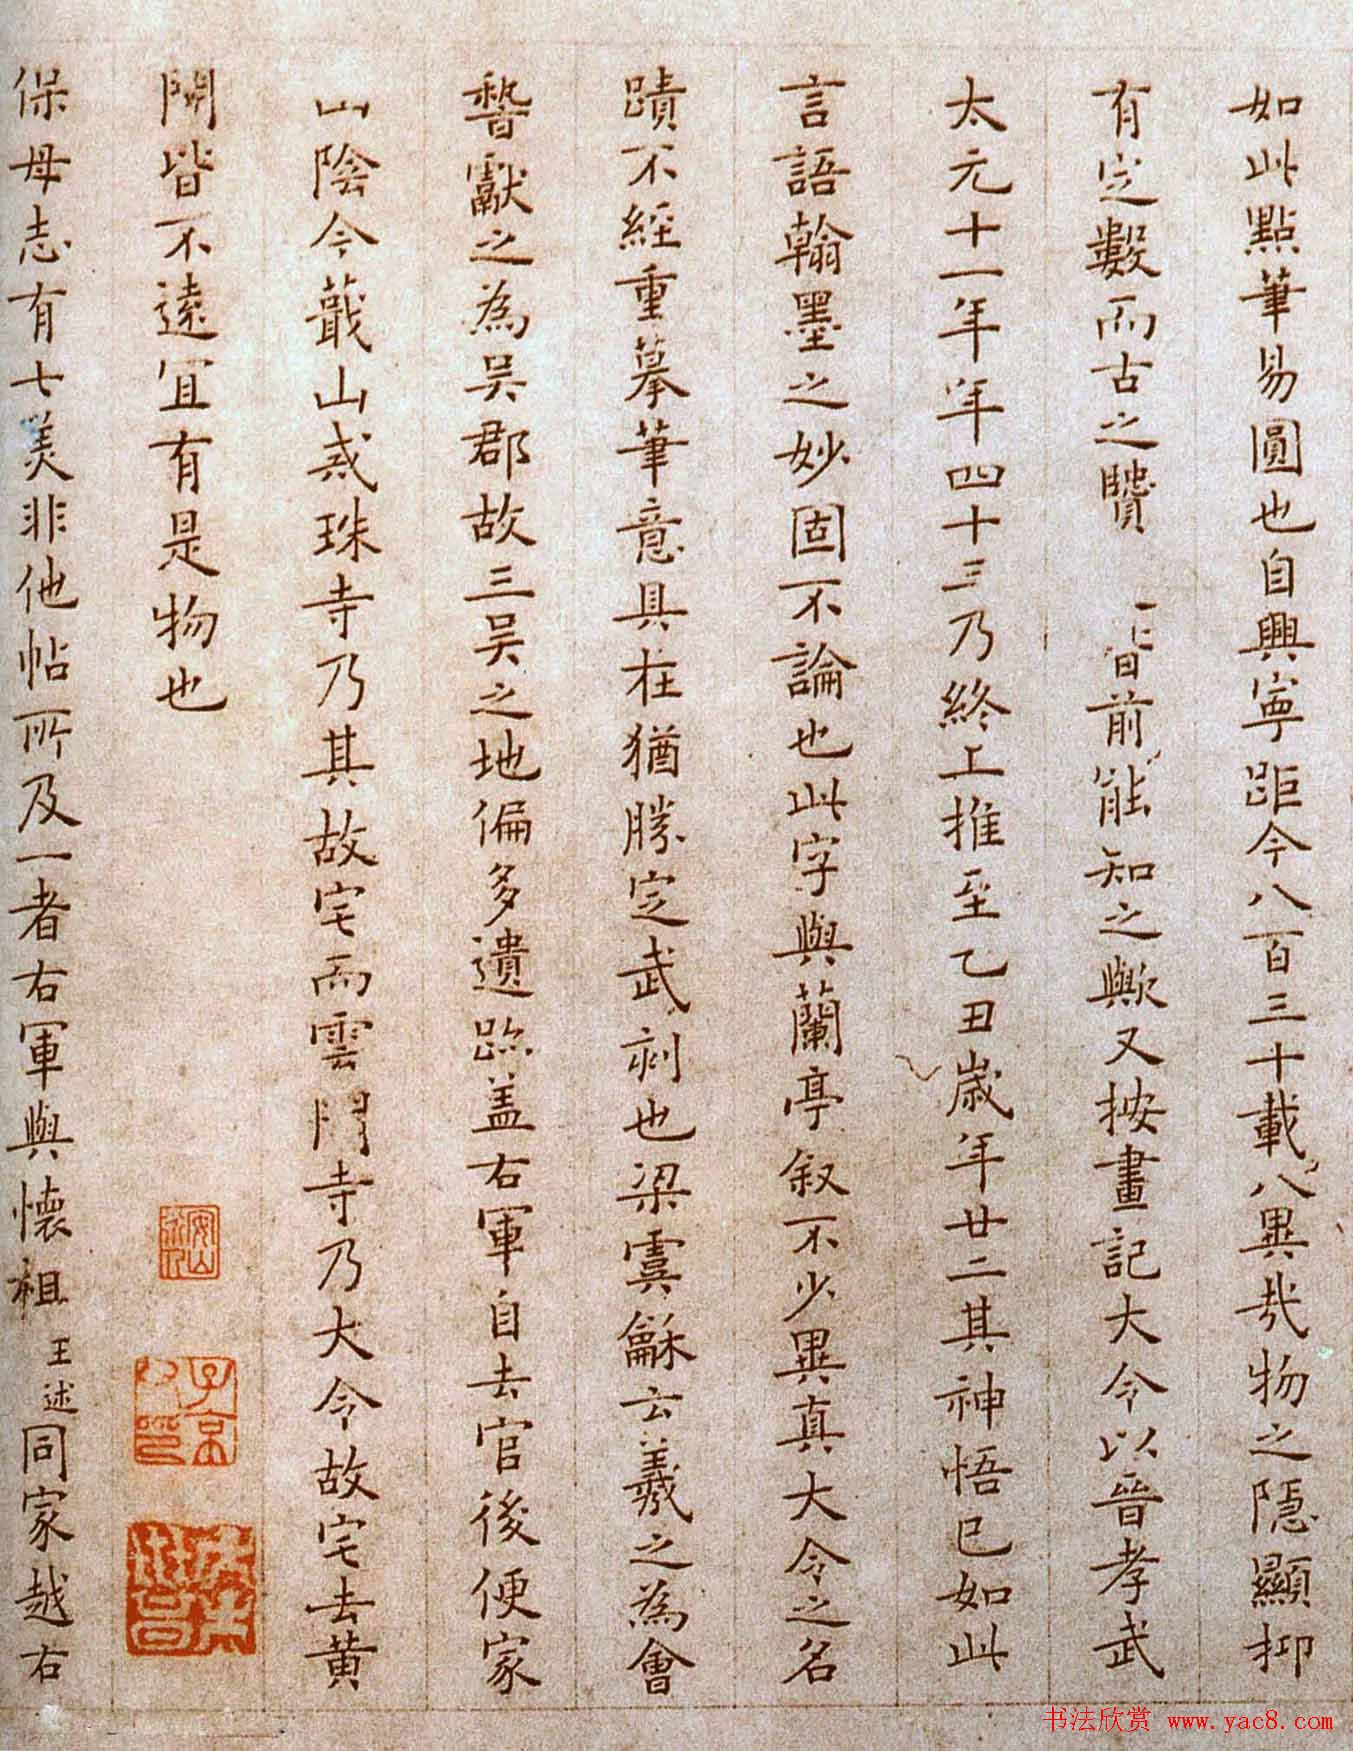 如此點筆易圓也自興寧距今八百三十載八異㢤物之隱顯抑
有定數而古之賢 前能知之歟又按畫記大令以晉孝武
太元十一年年四十三乃終上推至乙丑歲年廿二其神悟已如此
言語翰墨之妙固不論也此字與蘭亭叙不少異真大令之名
蹟不經重摹筆意具在猶勝定武刻也梁虞龢云羲之為會
稽獻之為吳郡故三吳之地偏多遺跡盖右軍自去官後便家
山陰今蕺山戒珠寺乃其故宅而雲門寺乃大令故宅去黄
閍皆不遠宜有是物也
保母志有七美非他帖所及一者右軍與懷祖王述同家越右
子京
书法欣赏 www.yac8.com